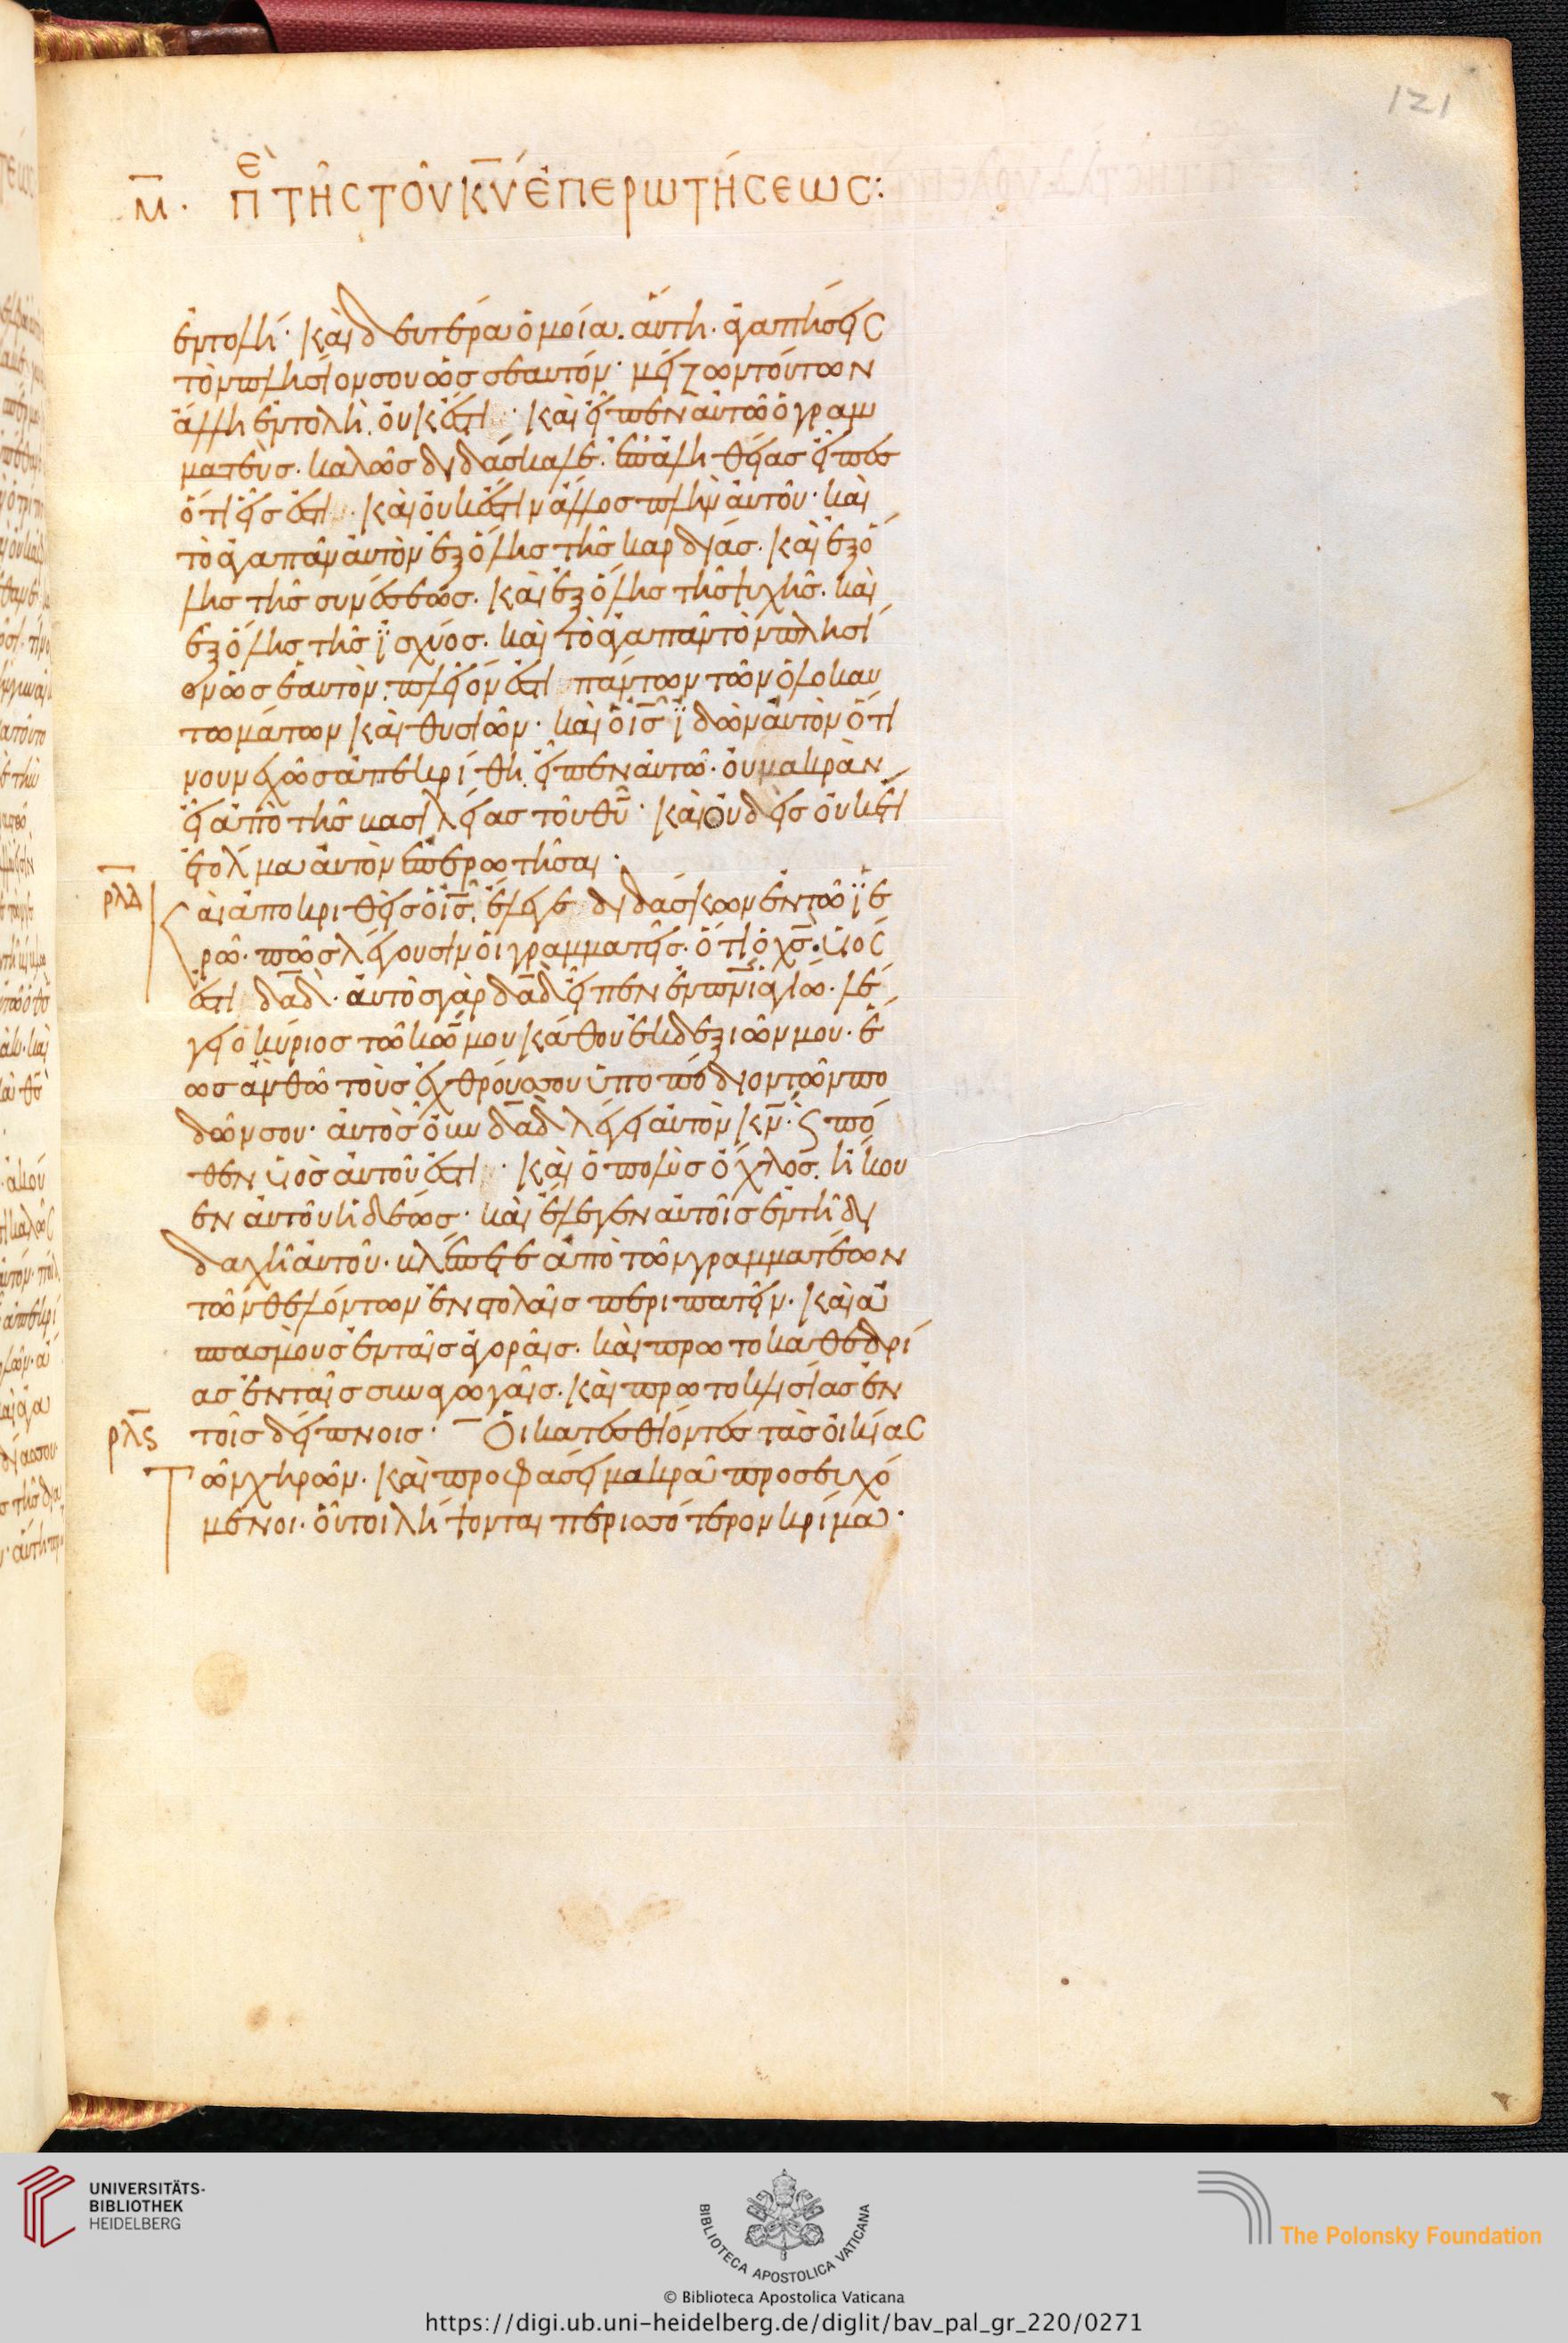 121
μ̅. πε̑ τῆς τοῦ κ̅υ̅ ἐπερωτήσεως:
ἐντολή· καὶ δευτέρα ὁμοία. αὕτη. ἀγαπήσεις
τὸν πλησίον σου ὡς σεαυτόν· μείζων τούτων
ἄλλη ἐντολὴ. οὐκ ἔστι· καὶ εἶπεν αὐτῶ ὁ γραμ
ματεὺς. καλῶς διδάσκαλε. ἐπ᾽ ἀληθείας εἶπες
ὅτι εἷς ἐστι. καὶ οὐκ ἔστιν ἄλλος πλὴν αὐτοῦ· καὶ
τὸ ἀγαπᾶν αὐτὸν ἐξ ὅλης τῆς καρδίας. καὶ ἐξ ὅ
λης τῆς συνέσεως. καὶ ἐξ ὅλης τῆς ψυχῆς. καὶ
ἐξ ὅλης τῆς ϊσχύος. καὶ τὸ ἀγαπᾶν τὸν πλησί
ον ὡς ἑαυτὸν. πλεῖόν ἐστι πάντων τῶν ὁλοκαυ
τωμάτων καὶ θυσιῶν· καὶ ὁ ι̅ς̅ ϊδὼν αὐτὸν ὅτι
νουνεχῶς ἀπεκρίθη. εἶπεν αὐτῶ. οὐ μακρὰν
εἶ ἀπὸ τῆς βασιλείας τοῦ θ̅υ̅· καὶ οὐδεὶς οὐκέτι
ἐτόλμα αὐτὸν ἐπερωτῆσαι·
ρλδ
Καὶ ἀποκριθεὶς ὁ ι̅ς̅. ἔλεγε διδάσκων ἐν τῶ ϊε
ρῶ. πῶς λέγουσιν οἱ γραμματεῖς. ὅτι ὁ χ̅ς̅. υἱὸς
ἐστι δ̅α̅δ̅. αὐτὸς γὰρ δ̅α̅δ̅ εἶπεν ἐν π̅ν̅ι̅ ἁγίω. λέ
γει ὁ κύριος τῶ κ̅ω̅ μου κάθου ἐκ δεξιῶν μου. ἕ
ως ἂν θῶ τοὺς ἐχθρούς σου ὑποπόδιον τῶν πο
δῶν σου· αὐτὸς οὖν δ̅α̅δ̅ λέγει αὐτὸν κ̅ν̅· ϗ πό
θεν υἱὸς αὐτοῦ ἐστι· καὶ ὁ πολὺς ὄχλος. ἤκου
εν αὐτοῦ ἡδέως· καὶ ἔλεγεν αὐτοῖς ἐν τῆ δι
δαχῆ αὐτοῦ. βλέπετε ἀπὸ τῶν γραμματέων
τῶν θελόντων ἐν στολαῖς περιπατεῖν. καὶ ἀ
σπασμοὺς ἐν ταῖς ἀγοραῖς. καὶ πρωτοκαθεδρί
ας ἐν ταῖς συναγωγαῖς. καὶ πρωτοκλισίας ἐν
ρλς τοῖς δείπνοις· Οἱ κατεσθίοντες τὰς οἰκίας
Τῶν χηρῶν. καὶ προφάσει μακρᾶ προσευχό
μενοι. οὗτοι λήψονται περισσότερον κρίμα·
UNIVERSITÄTS-
BIBLIOTHEK
HEIDELBERG
BIBLIOTECA APOSTOLICA VATICANA
The Polonsky Foundation
© Biblioteca Apostolica Vaticana
https://digi.ub.uni-heidelberg.de/diglit/bav_pal_gr_220/0271